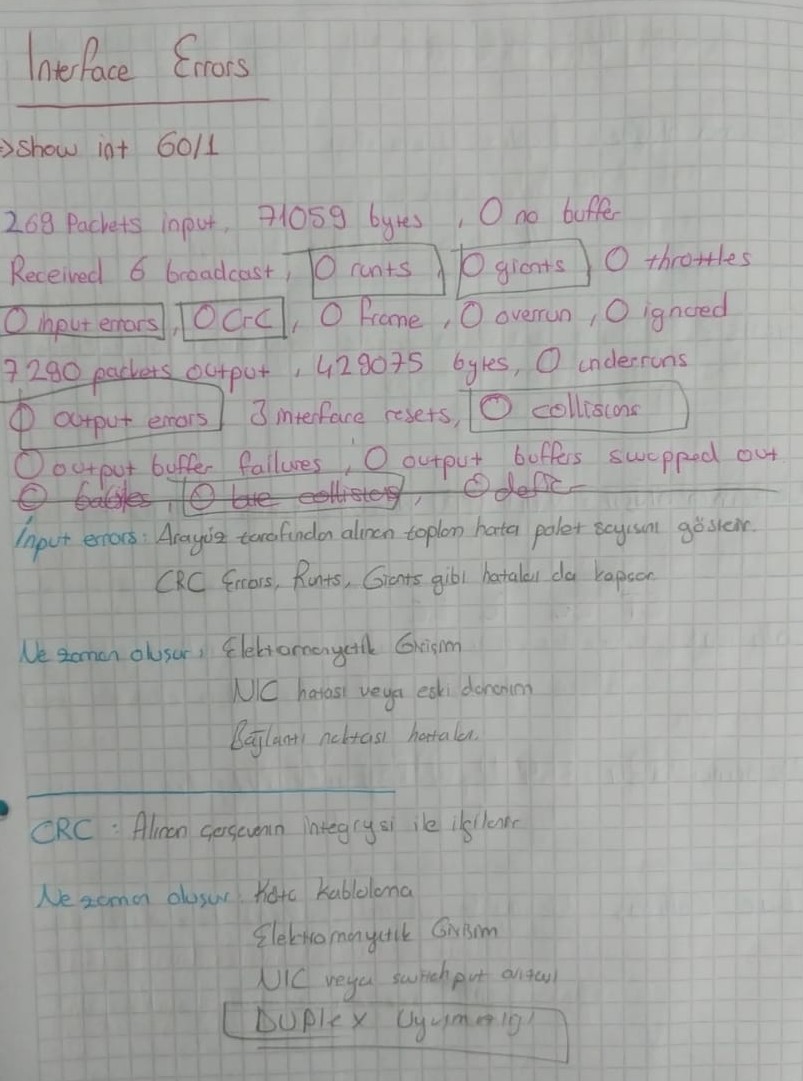 Interface Errors
→ show int G0/1
269 Packets input, 71059 bytes, 0 no buffer
Received 6 broadcast, 0 runts 0 giants 0 throttles
0 input errors, 0 CrC, 0 frame, 0 overrun, 0 ignored
7290 packets output, 429075 bytes, 0 underruns
0 output errors 3 interface resets, 0 collisions
0 output buffer failures, 0 output buffers swapped out
0 babbles, 0 late collisions, 0 defer
İnput errors: Arayüz tarafından alınan toplam hata paket sayısını gösterir.
CRC Errors, Runts, Giants gibi hataları da kapsar
Ne zaman oluşur, Elektromanyetik Girişim
NIC hatası veya eski donanım
Bağlantı noktası hataları.
CRC : Alınan çerçevenin ile ilgilenir
Ne zaman oluşur. Kötü kablolama
Elektromanyetik Girişim
NIC veya switch port arızası
Duplex Uyumsuzluğu